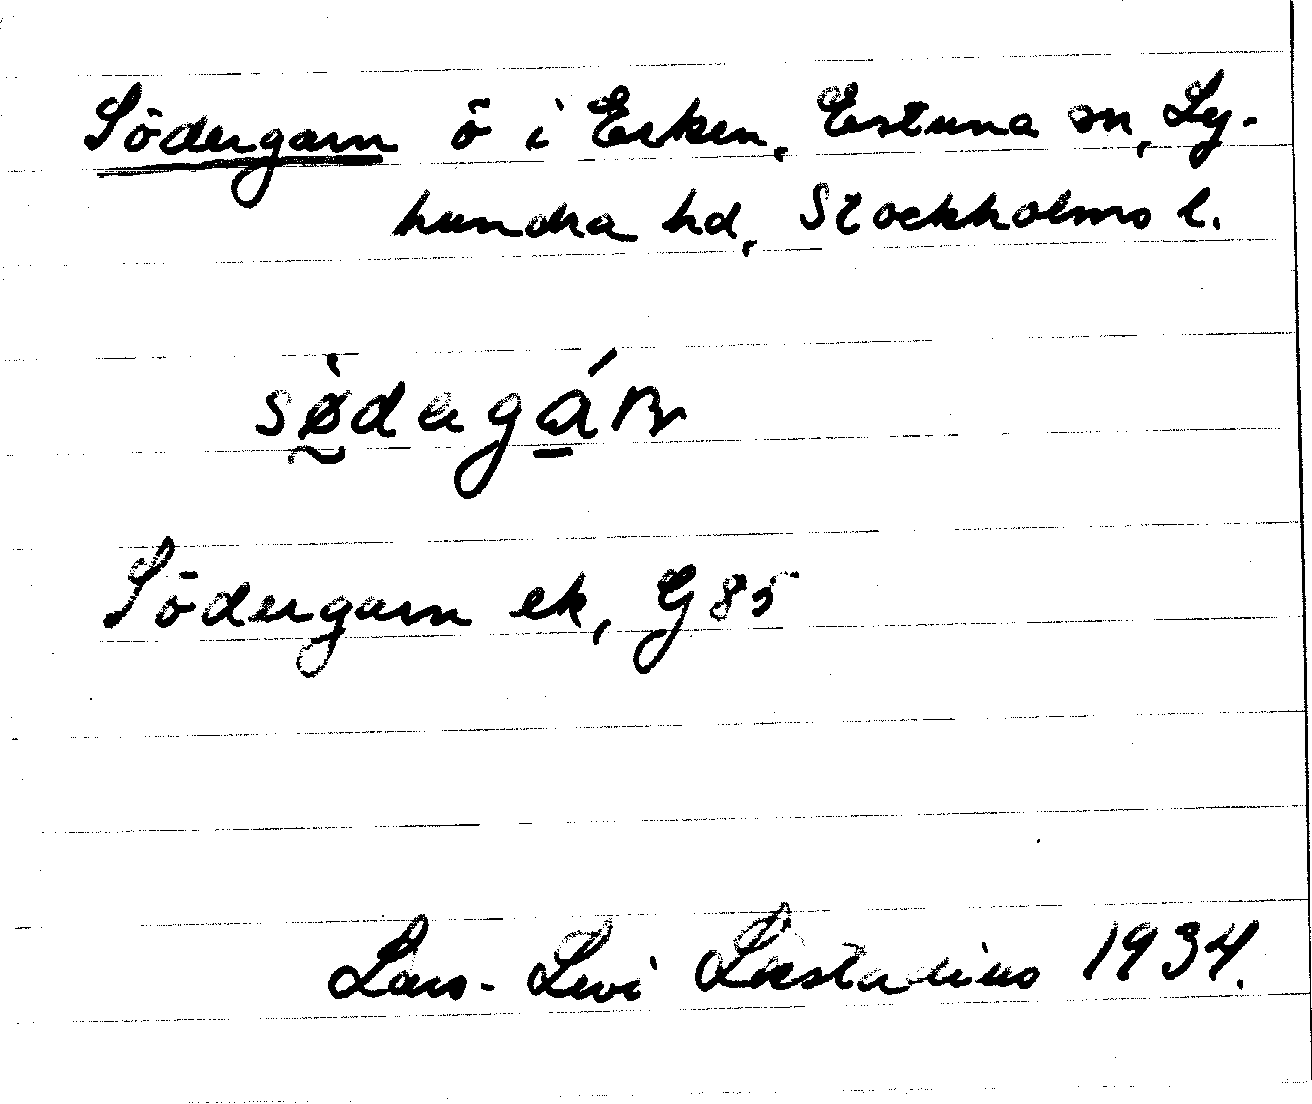 Södergarn ö i Erken, Estuna sn, Ly-
hundra hd, Stockholms l.
sø̀dergárn
Södergarn ek, G85
Lars-Levi Læstadius 1934.